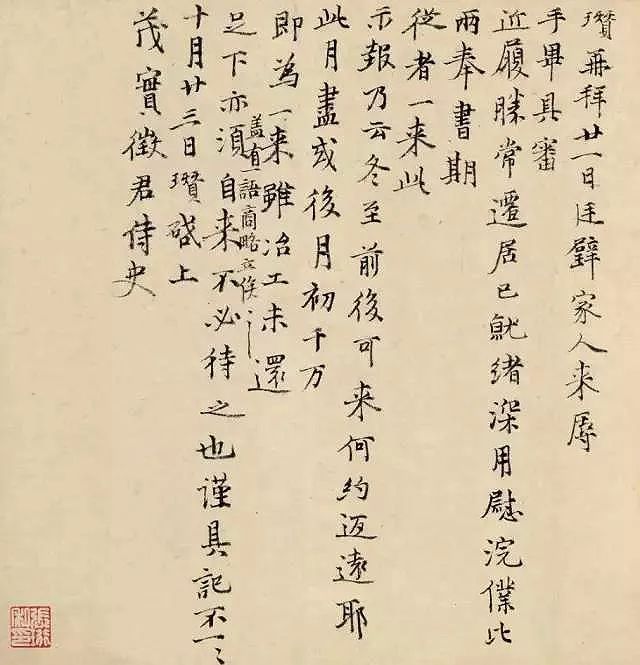 瓚再拜廿一日廷璧家人来辱
手畢具審
近履勝常遷居已就緒深用慰浣僕比
兩奉書期
從者一来此
示報乃云冬至前後可来何約迈遠耶
此月盡或後月初千万
即為一来雖冶工未還
盖有一語商略立俟之
足下亦湏自来不必待之也謹具記不一一
十月廿三日瓚啓上
茂實徵君侍史